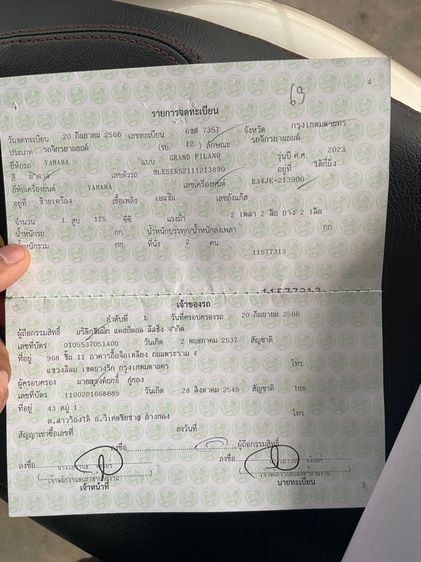 4
รายการจดทะเบียน
69
วันจดทะเบียน 20 กันยายน 2566 เลขทะเบียน 6ขศ 7357 จังหวัด กรุงเทพมหานคร
ประเภท รถจักรยานยนต์ (รย 12) ลักษณะ รถจักรยานยนต์
ยี่ห้อรถ YAMAHA แบบ GRAND FILANO รุ่นปี ค.ศ. 2023
สี เลขตัวรถ MLESEK52111213890 อยู่ที่ ใต้ที่นั่ง
ยี่ห้อเครื่องยนต์ YAMAHA เลขเครื่องยนต์ E34JE-213900
อยู่ที่ ซ้ายเครื่อง เชื้อเพลิง เบนซิน เลขถังแก๊ส
จำนวน 1 สูบ 125 ซีซี แรงม้า 2 เพลา 2 ล้อ ยาง 2 เส้น
น้ำหนักรถ กก. น้ำหนักบรรทุก/น้ำหนักลงเพลา กก.
น้ำหนักรวม กก. ที่นั่ง 2 คน
11577313
11577313
เจ้าของรถ
ลำดับที่ 1 วันที่ครอบครองรถ 20 กันยายน 2566
ผู้ถือกรรมสิทธิ์ บริษัท แคปปิตอล ลีสซิ่ง จำกัด
เลขที่บัตร 0105537051400 วันเกิด 2 พฤษภาคม 2537 สัญชาติ
ที่อยู่ 968 ชั้น 11 อาคารอื้อจือเหลียง ถนนพระราม 4
แขวงสีลม เขตบางรัก กรุงเทพมหานคร โทร.
ผู้ครอบครอง
เลขที่บัตร 1100201658685 วันเกิด 28 สิงหาคม 2545 สัญชาติ ไทย
ที่อยู่ 43 หมู่ 1
ต.สาวร้องไห้ อ.วิเศษชัยชาญ อ่างทอง โทร.
สัญญาเช่าซื้อเลขที่ ลงวันที่
ลงชื่อ ผู้ถือกรรมสิทธิ์
ลงชื่อ ลงชื่อ
เจ้าหน้าที่ นายทะเบียน
5